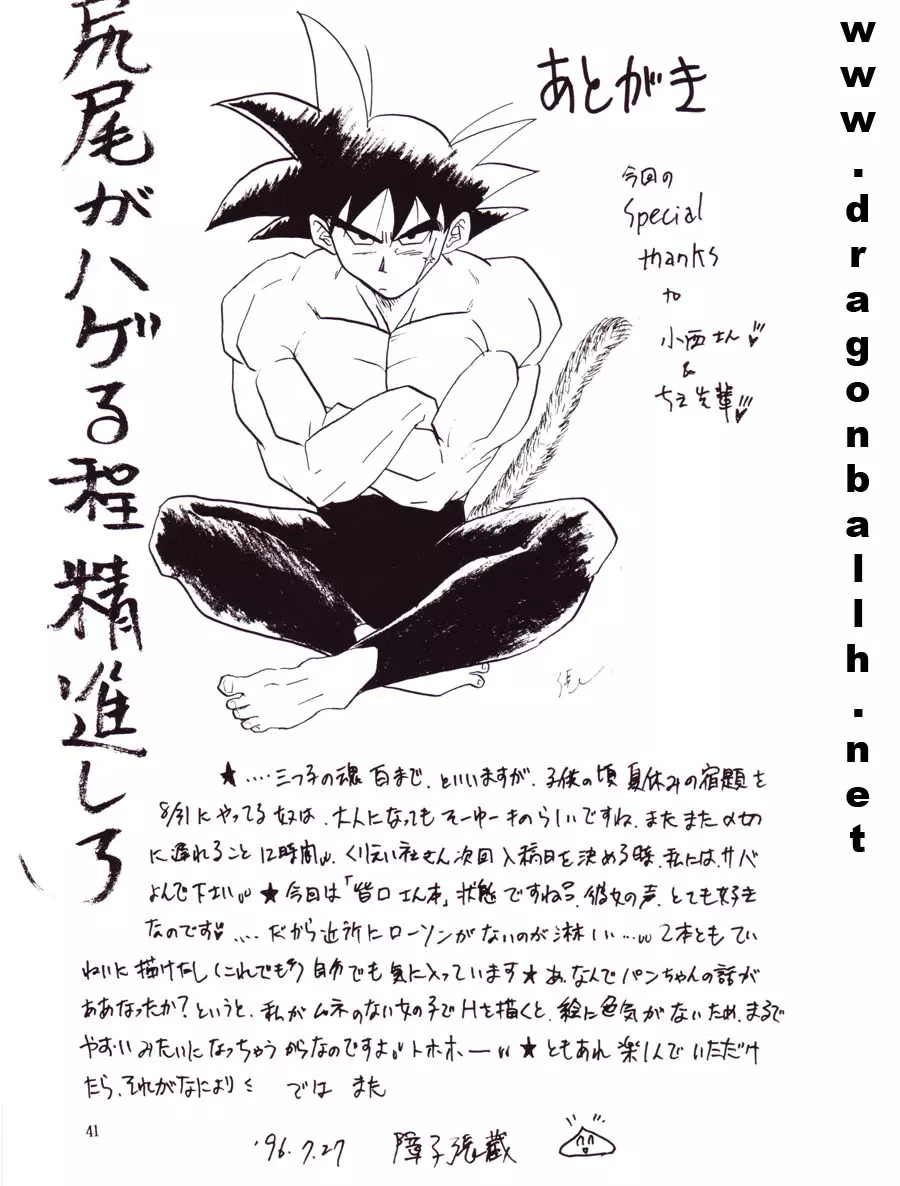 尻尾がハゲる程精進しろ
あとがき
今回の
special
thanks
to
小西さん
&
ちえ先輩
★....三つ子の魂百まで、といいますが、子供の頃夏休みの宿題を
8/31にやってる奴は、大人になってもそーゆーものらしいですね、またまた〆切
に遅れること12時間。くりえい社さん次回入稿日を決める時、私には、サバ
よんで下さい。★今回は「皆口さん本」状態ですね 彼女の声、とても好き
なのです....だから近所にローソンがないのが淋しい...2本ともてい
ねいに描けたし(これでも)自分でも気に入っています★あ、なんでパンちゃんの話が
ああなったか?というと、私がムネのない女の子でHを描くと、絵に色気がないため、まるで
やおいみたいになっちゃうからなのですよ トホホー ★ともあれ楽しんでいただけ
たら、それがなにより では また
41
'96.7.27 障子張蔵
www.dragonballh.net